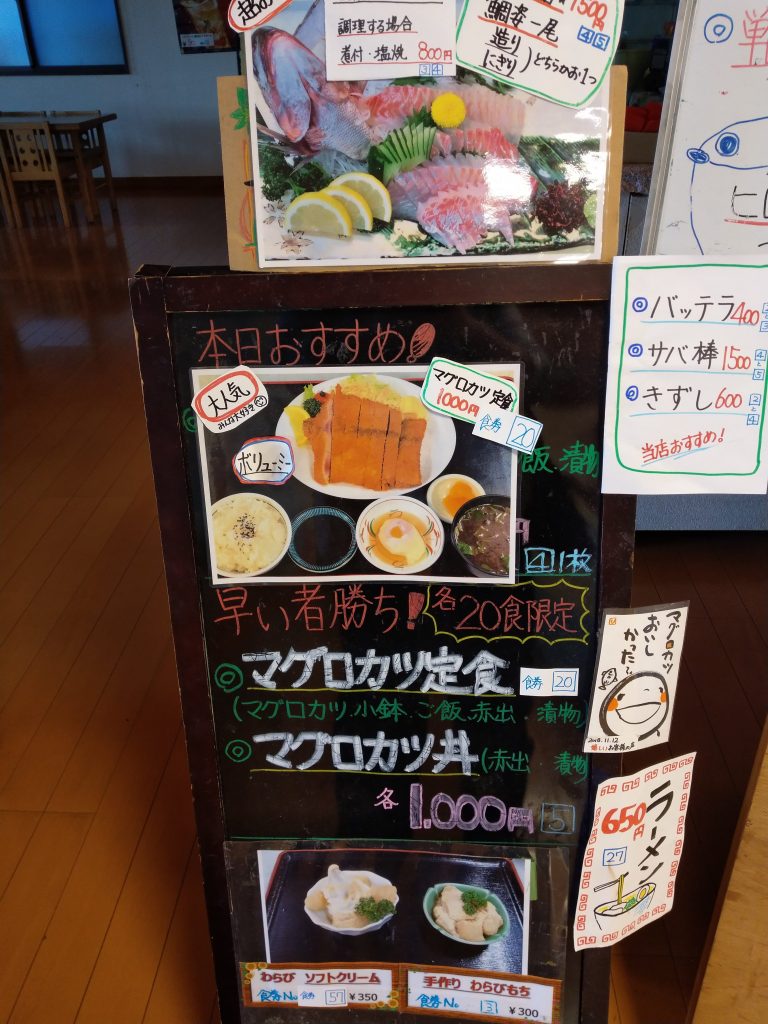 調理する場合
煮付・塩焼 800円
3 4
1500円
鯛姿一尾
造り
にぎり
どちらかお1つ
4 5
バッテラ 400
サバ棒 1500
4と5
きずし 600
2と4
当店おすすめ!
本日おすすめ!
大人気
みんな大好き
マグロカツ定食
1000円
食券 20
ボリューミー
飯.漬物
円
4 1枚
早い者勝ち!
各20食限定
◎マグロカツ定食 食券 20
(マグロカツ.小鉢.ご飯.赤出.漬物)
◎マグロカツ丼(赤出.漬物)
各1.000円 5
マグロカツ
おいし
かった!
ラーメン
650円
27
わらび ソフトクリーム
食券No 食券 57 ¥350
手作り わらびもち
食券No 131 ¥300